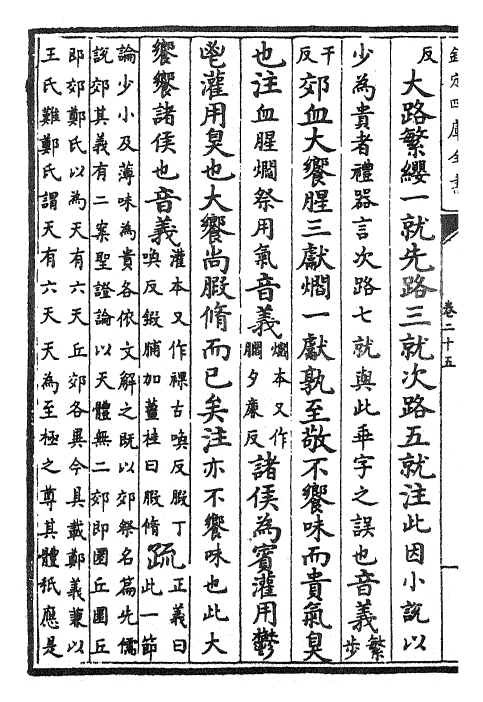 欽定四庫全書
卷二十五
反大路繁纓一就先路三就次路五就注此因小說以
少為貴者禮器言次路七就與此乖字之誤也音義繁步
干反郊血大饗腥三獻爓一獻孰至敬不饗味而貴氣臭
也注血腥爓祭用氣音義爓本又作膶夕廉反諸侯為賓灌用鬱
鬯灌用臭也大饗尚腶脩而已矣注亦不饗味也此大
饗饗諸侯也音義灌本又作祼古喚反腶丁喚反鍛脯加薑桂曰腶脩疏正義曰此一節
論少小及薄味為貴各依文解之既以郊祭名篇先儒
說郊其義有二案聖證論以天體無二郊即圜丘圜丘
即郊鄭氏以為天有六天丘郊各異今具載鄭義兼以
王氏難鄭氏謂天有六天天為至極之尊其體秖應是